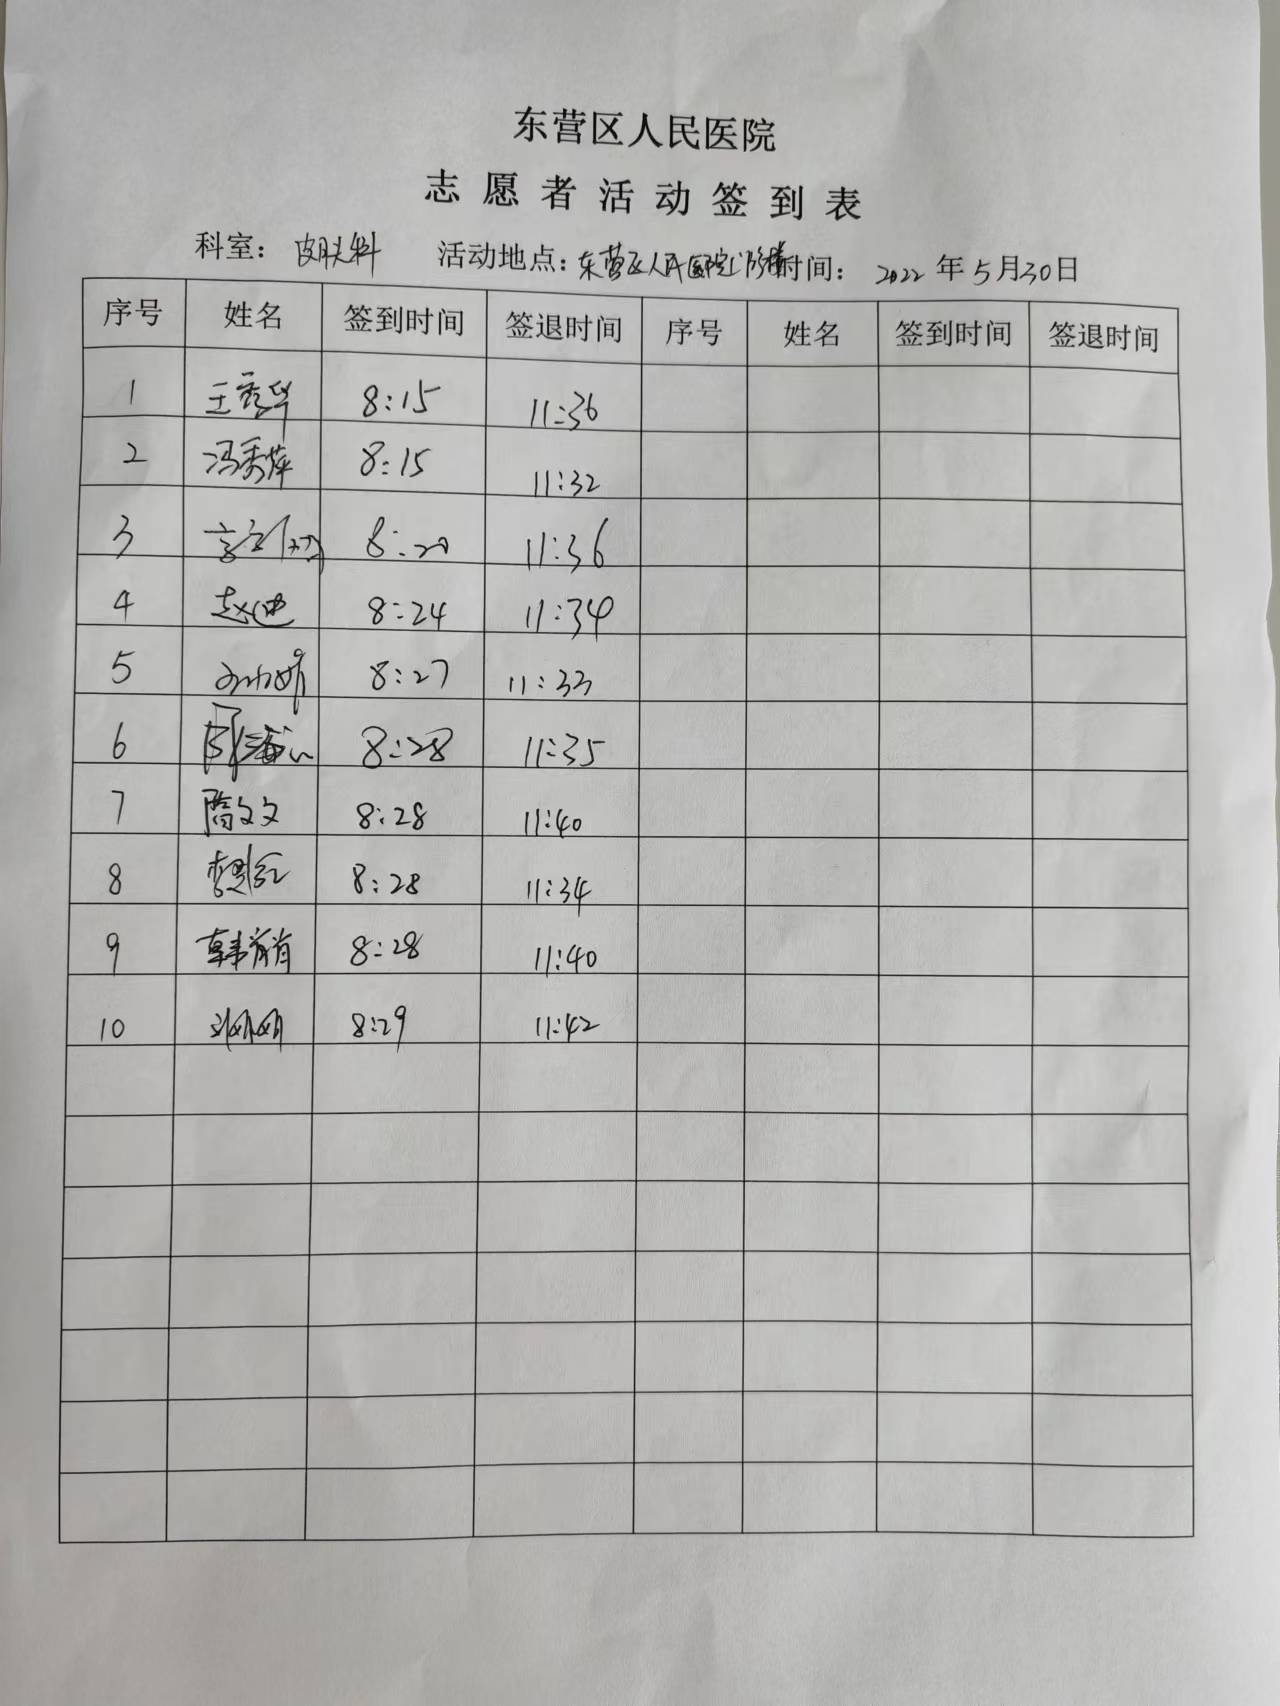 东营区人民医院
志愿者活动签到表
科室：皮肤科 活动地点：东营区人民医院门诊楼 时间：2022年5月30日
序号 姓名 签到时间 签退时间 序号 姓名 签到时间 签退时间
1 王秀华 8:15 11:36
2 冯秀萍 8:15 11:32
3 8:20 11:36
4 赵迪 8:24 11:34
5 8:27 11:33
6 8:28 11:35
7 隋文文 8:28 11:40
8 8:28 11:34
9 韩肖肖 8:28 11:40
10 刘娟娟 8:29 11:42